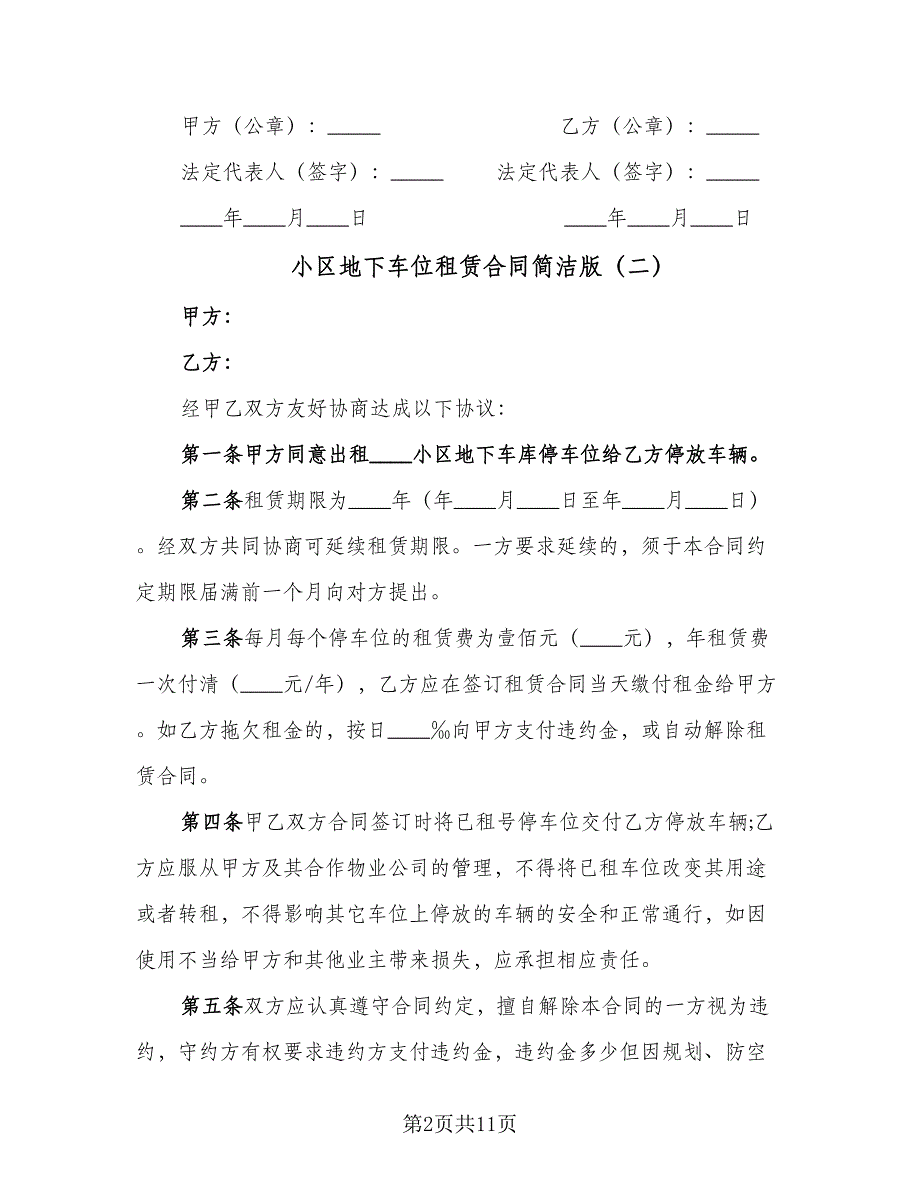 甲方（公章）：_____ 乙方（公章）：_____
法定代表人（签字）：_____ 法定代表人（签字）：_____
____年____月____日 ____年____月____日
小区地下车位租赁合同简洁版（二）
甲方：
乙方：
经甲乙双方友好协商达成以下协议：
第一条甲方同意出租____小区地下车库停车位给乙方停放车辆。
第二条租赁期限为____年（年____月____日至年____月____日）
。经双方共同协商可延续租赁期限。一方要求延续的，须于本合同约
定期限届满前一个月向对方提出。
第三条每月每个停车位的租赁费为壹佰元（____元），年租赁费
一次付清（____元/年），乙方应在签订租赁合同当天缴付租金给甲方
。如乙方拖欠租金的，按日____‰向甲方支付违约金，或自动解除租
赁合同。
第四条甲乙双方合同签订时将已租号停车位交付乙方停放车辆;乙
方应服从甲方及其合作物业公司的管理，不得将已租车位改变其用途
或者转租，不得影响其它车位上停放的车辆的安全和正常通行，如因
使用不当给甲方和其他业主带来损失，应承担相应责任。
第五条双方应认真遵守合同约定，擅自解除本合同的一方视为违
约，守约方有权要求违约方支付违约金，违约金多少但因规划、防空
第2页共11页